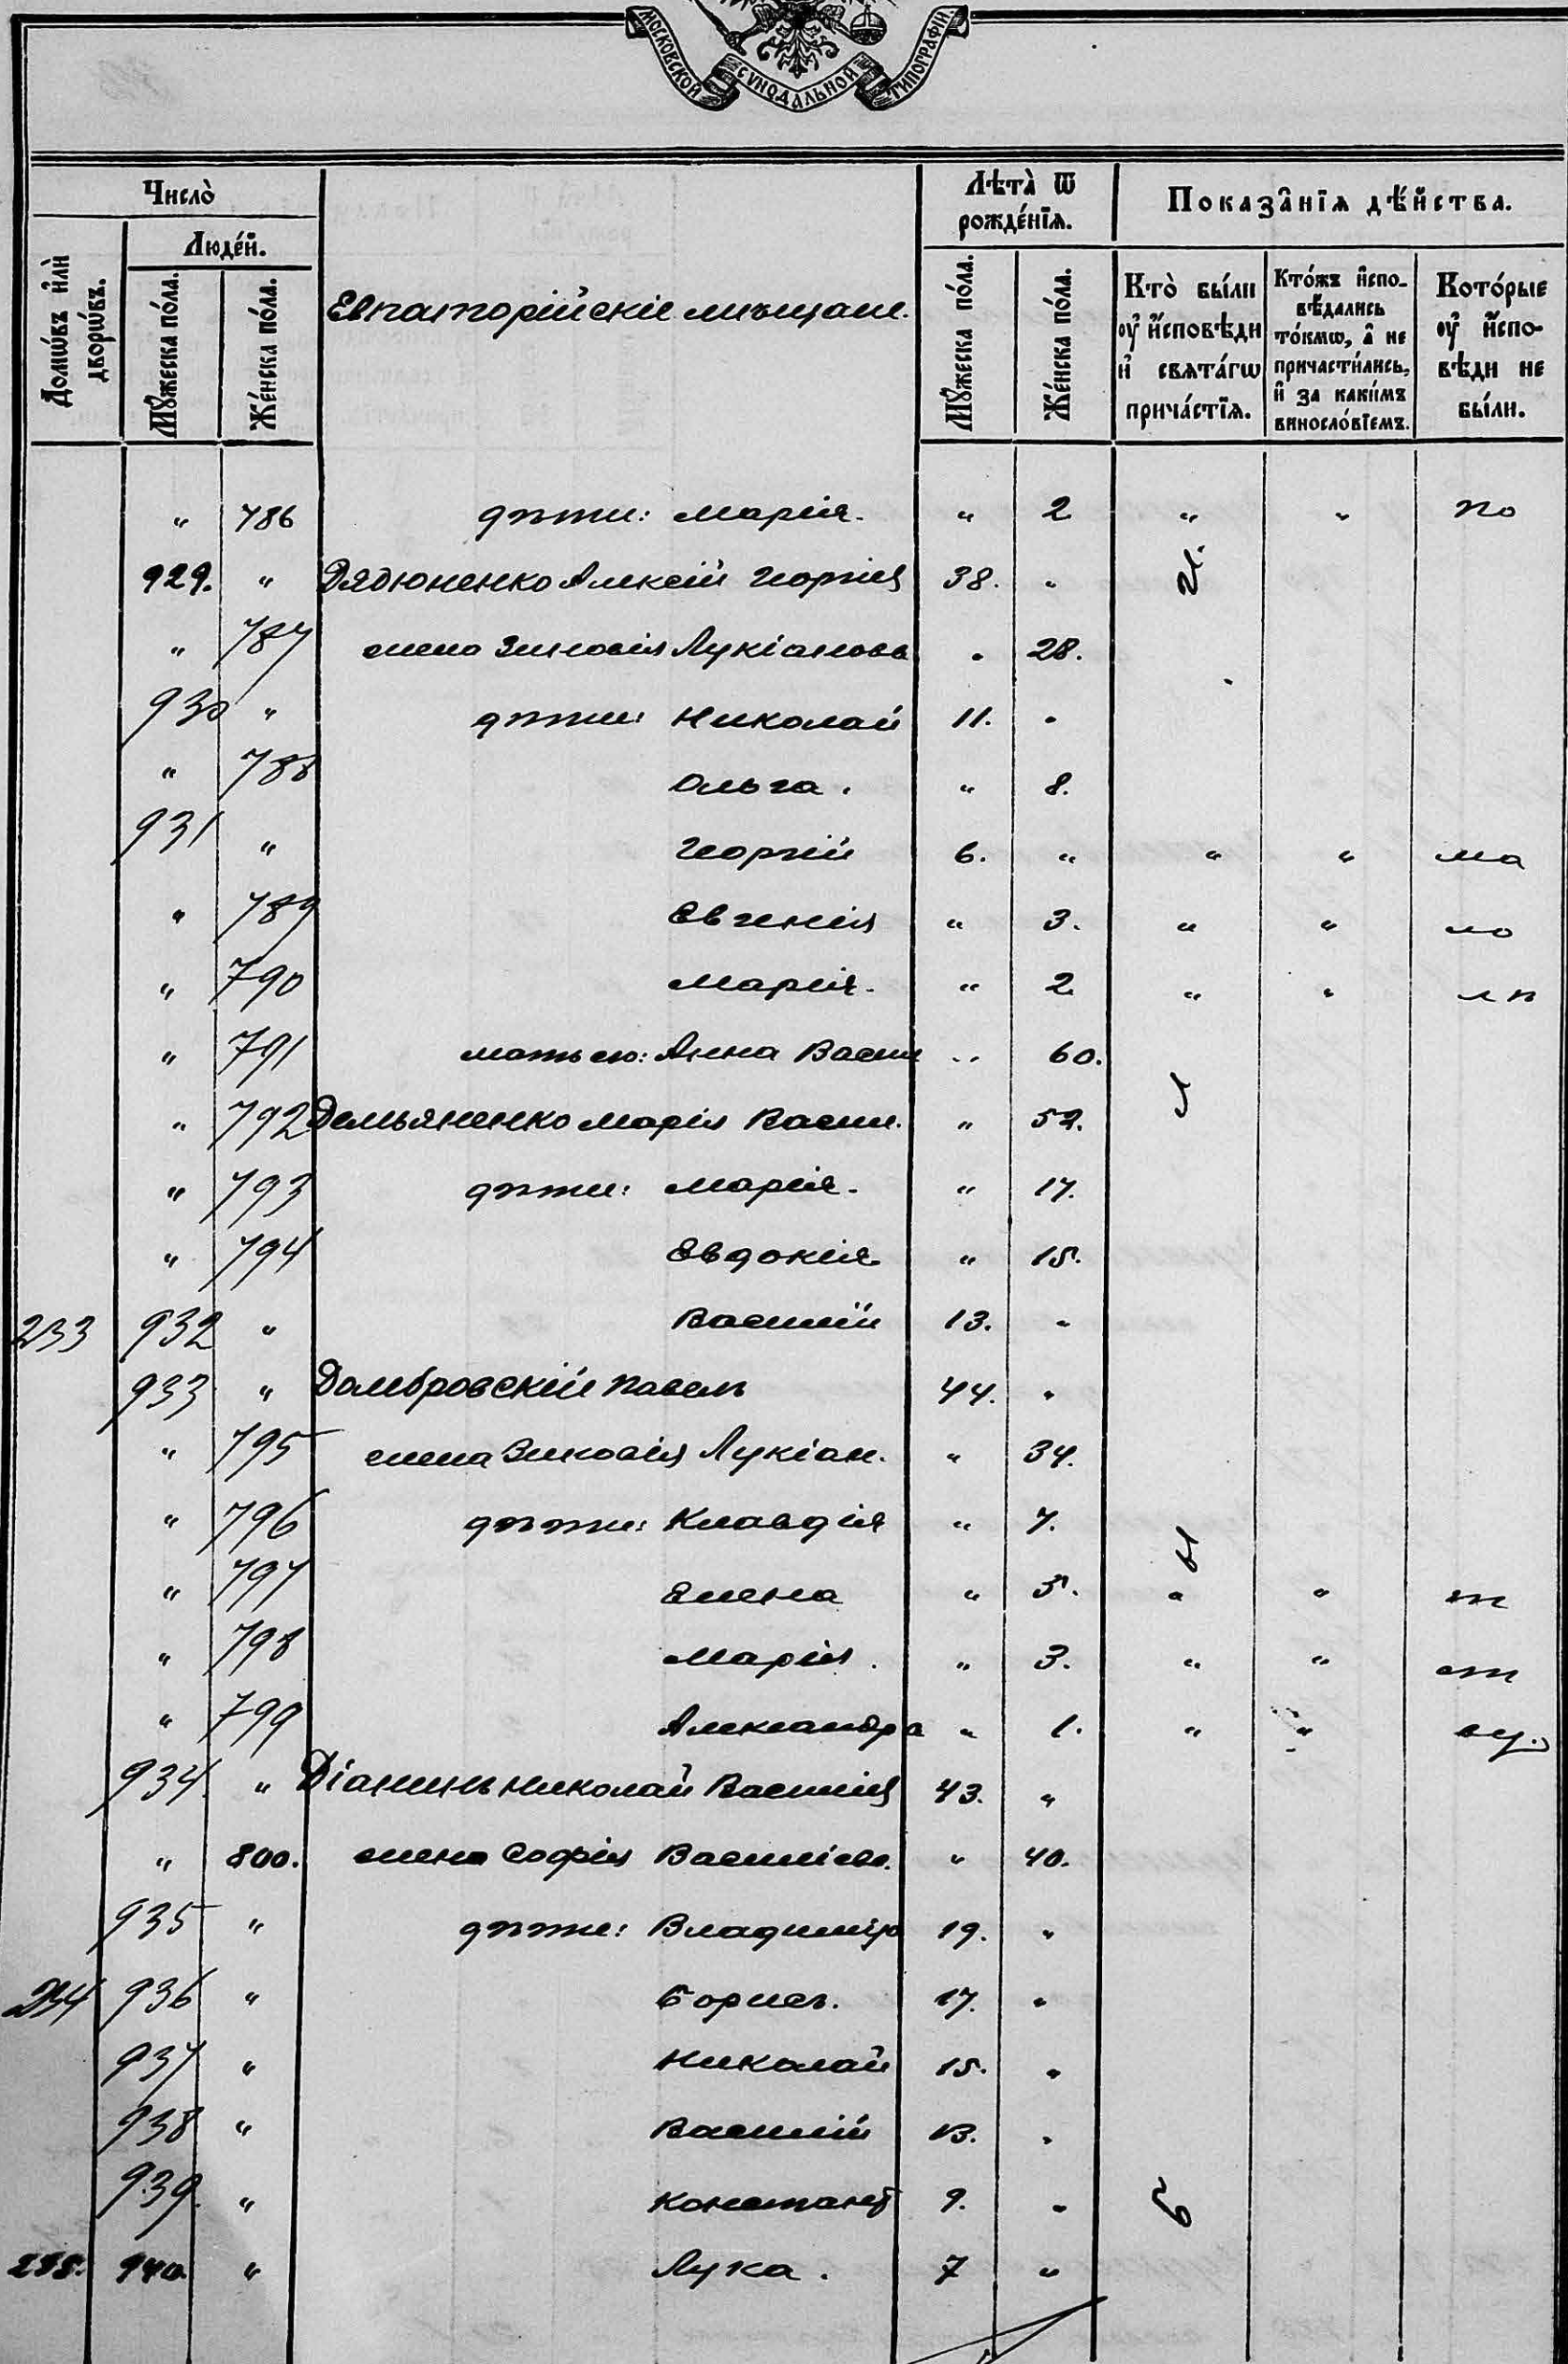 МОСКОВСКОЙ СѴНОДАЛЬНОЙ ТИПОГРАФІИ
Число̀
Домѡ́въ и҆лѝ дворѡ́въ.
Люде́й.
Мꙋ́жеска по́ла.
Же́нска по́ла.
Евпаторійскіе мѣщане.
Лѣта̀ ѿ рожде́нїѧ.
Мꙋ́жеска по́ла.
Же́нска по́ла.
Показа̑нїѧ дѣ́йства.
Кто̀ бы́ли оу҆ и҆́сповѣди и҆ свѧта́гѡ прича́стїѧ.
Кто́жъ и҆спо-вѣдались то́кмѡ, а҆ не причасти́лись, и҆ за каки́мъ винослόвїемъ.
Кото́рые оу҆ и҆́спо-вѣди не бы́ли.
" 786 дѣти: Марія. " 2 " " по
929. " Дядюненко Алексій Георгіев 38. "
" 787 жена Зиновія Лукіанова " 28.
930 " дѣти: Николай 11. "
" 788 Ольга. " 8.
931 " Георгій 6. " " " ма
" 789 Евгенія " 3. " " ло
" 790 Марія. " 2 " "
" 791 мать ею: Анна Васил " 60.
" 792 Демьяненко Марія Васил. " 52.
" 793 дѣти: Марія. " 17.
" 794 Евдокія " 15.
233 932 " Василій 13. "
933 " Домбровскій Павелъ 44. "
" 795 жена Зиновія Лукіан. " 34.
" 796 дѣти: Клавдія " 7.
" 797 Елена " 5. " "
" 798 Марія. " 3. " "
" 799 Александра " 1. " "
934. " Діанинъ Николай Василіев 43. "
" 800. жена Софія Василіев. " 40.
935 " дѣти: Владиміръ 19. "
234 936 " Борисъ. 17. "
937 " Николай 15. "
938 " Василій 13. "
939. " Константъ 9. "
235. 940 " Лука. 7 "